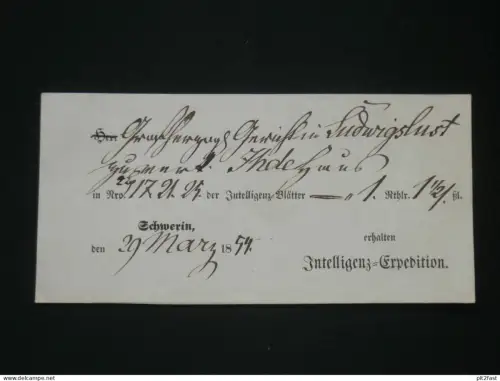 Herr Großherzogl Gericht in Ludwigslust
Ihde Haus
in Nro. 17. 21. 25. der Intelligenz-Blätter — 1. Rthlr. ßl.
Schwerin,
den 29 März 1854.
erhalten
Intelligenz-Expedition.
www.delcampe.net
plt2fast